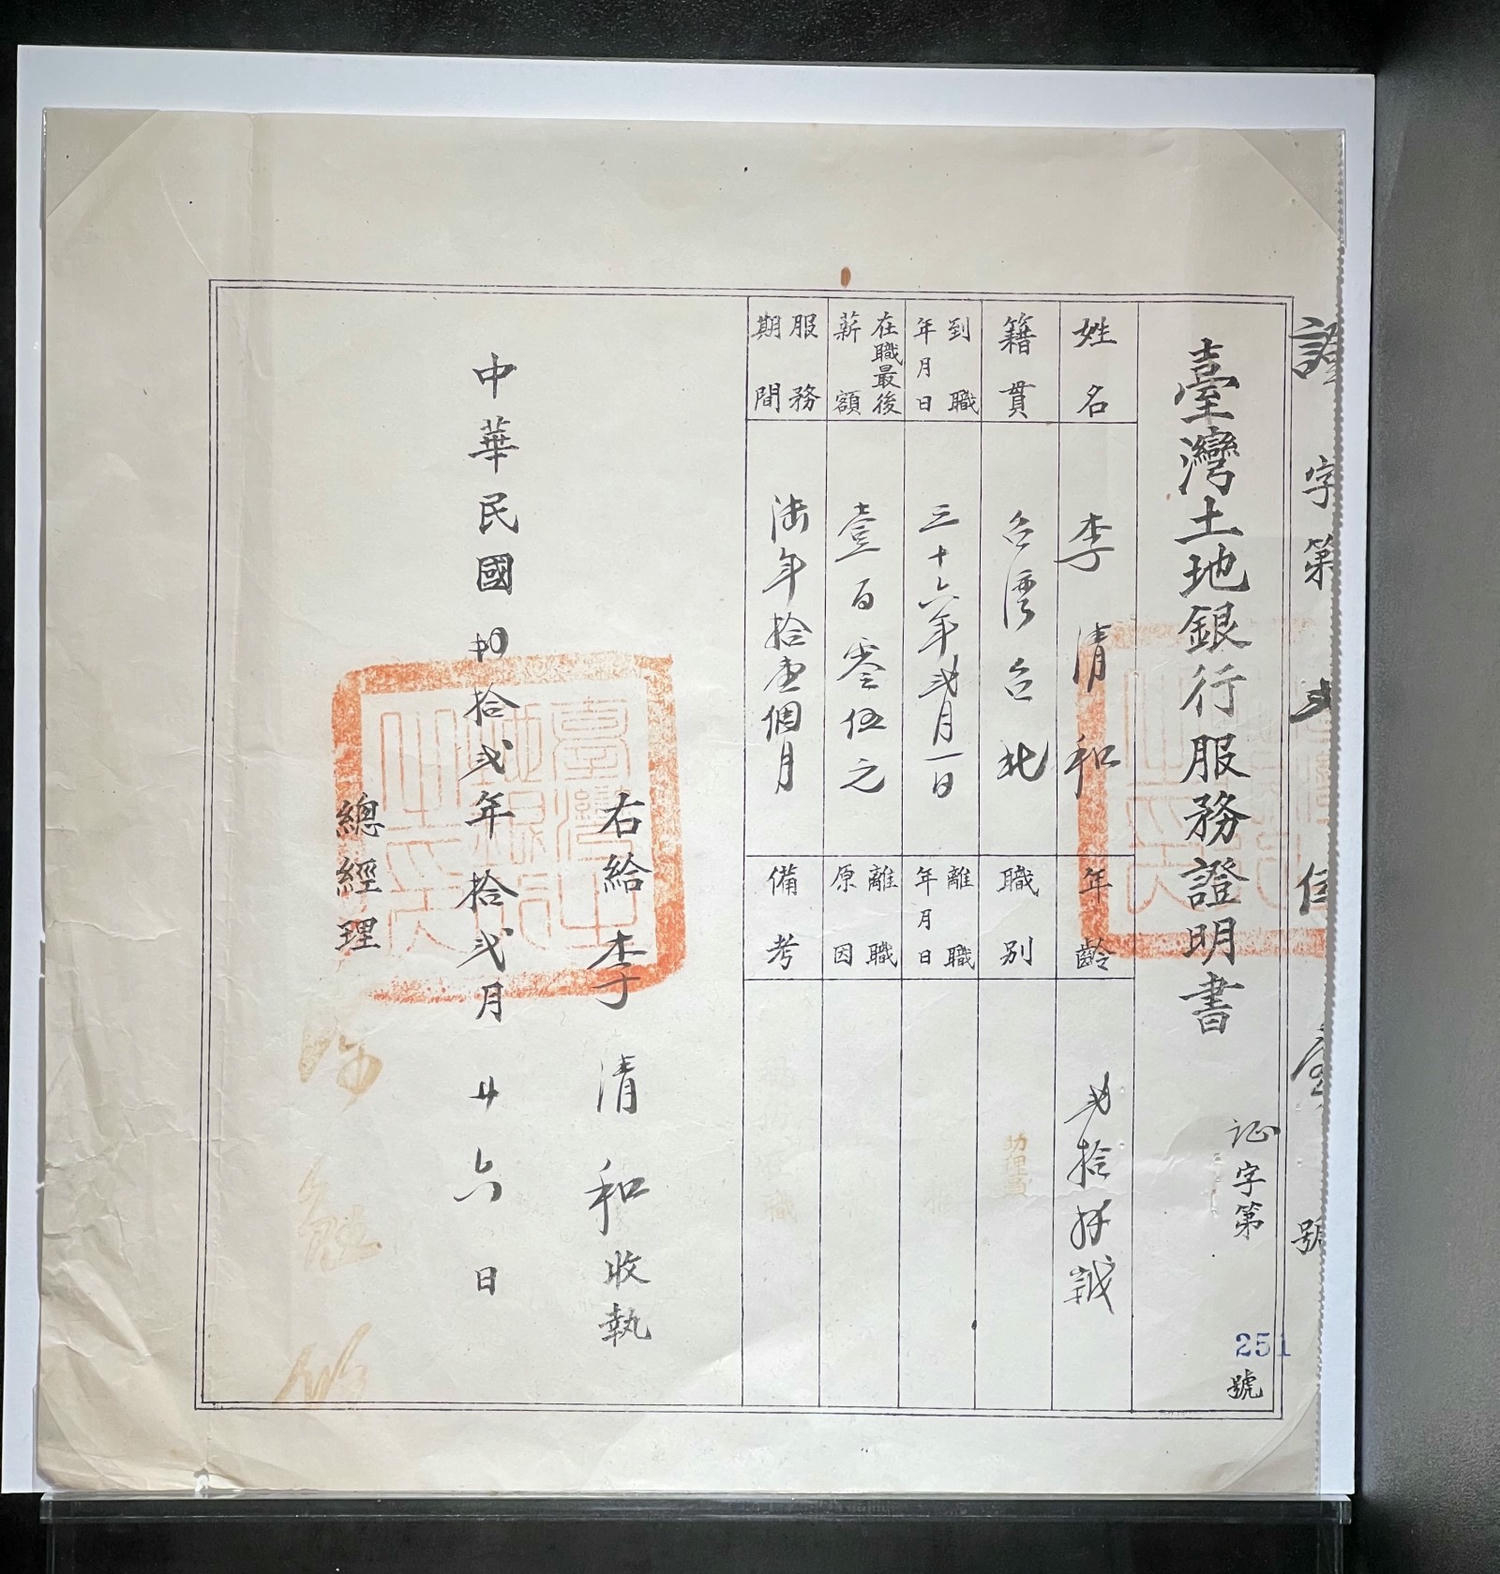 字第
號
臺灣土地銀行服務證明書
证字第
251
號
姓名
李清和
年齡
弍拾
歲
籍貫
台湾台北
職別
助理員
到職年月日
三十六年弍月一日
離職年月日
在職最後薪額
壹百零伍元
離職原因
服務期間
陆年拾壹個月
備考
右給李清和收執
中華民國四拾弍年拾弍月廿六日
總經理